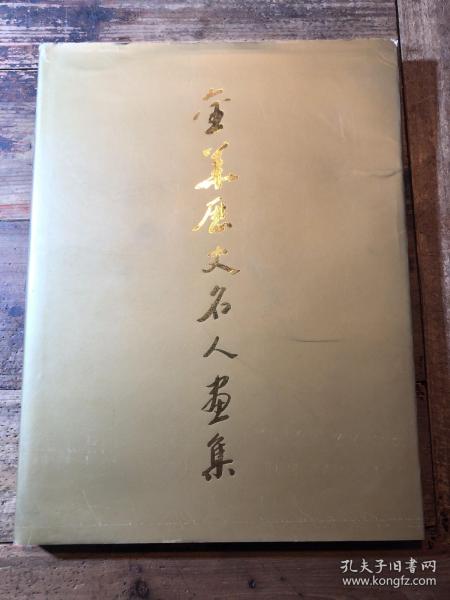 金华历史名人画集
孔夫子旧书网
www.kongfz.com